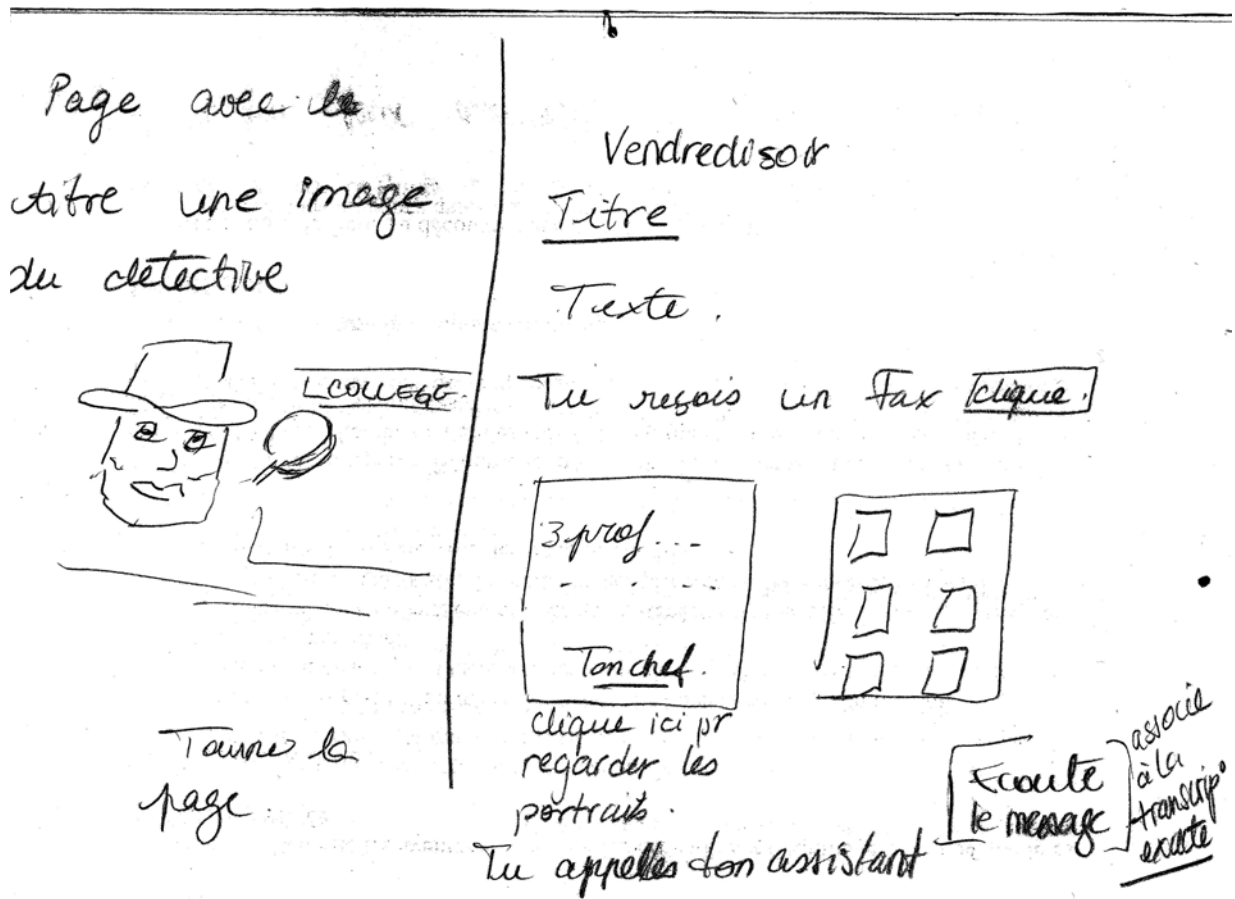 Page avec le
titre une image
du detective
COLLEGE
Tourne la
page
Vendredi soir
Titre
Texte.
Tu reçois un Fax clique.
3 prof...
Ton chef.
clique ici pr
regarder les
portraits.
Tu appelles ton assistant
Ecoute
le message
associe
à la
transcrip°
exacte